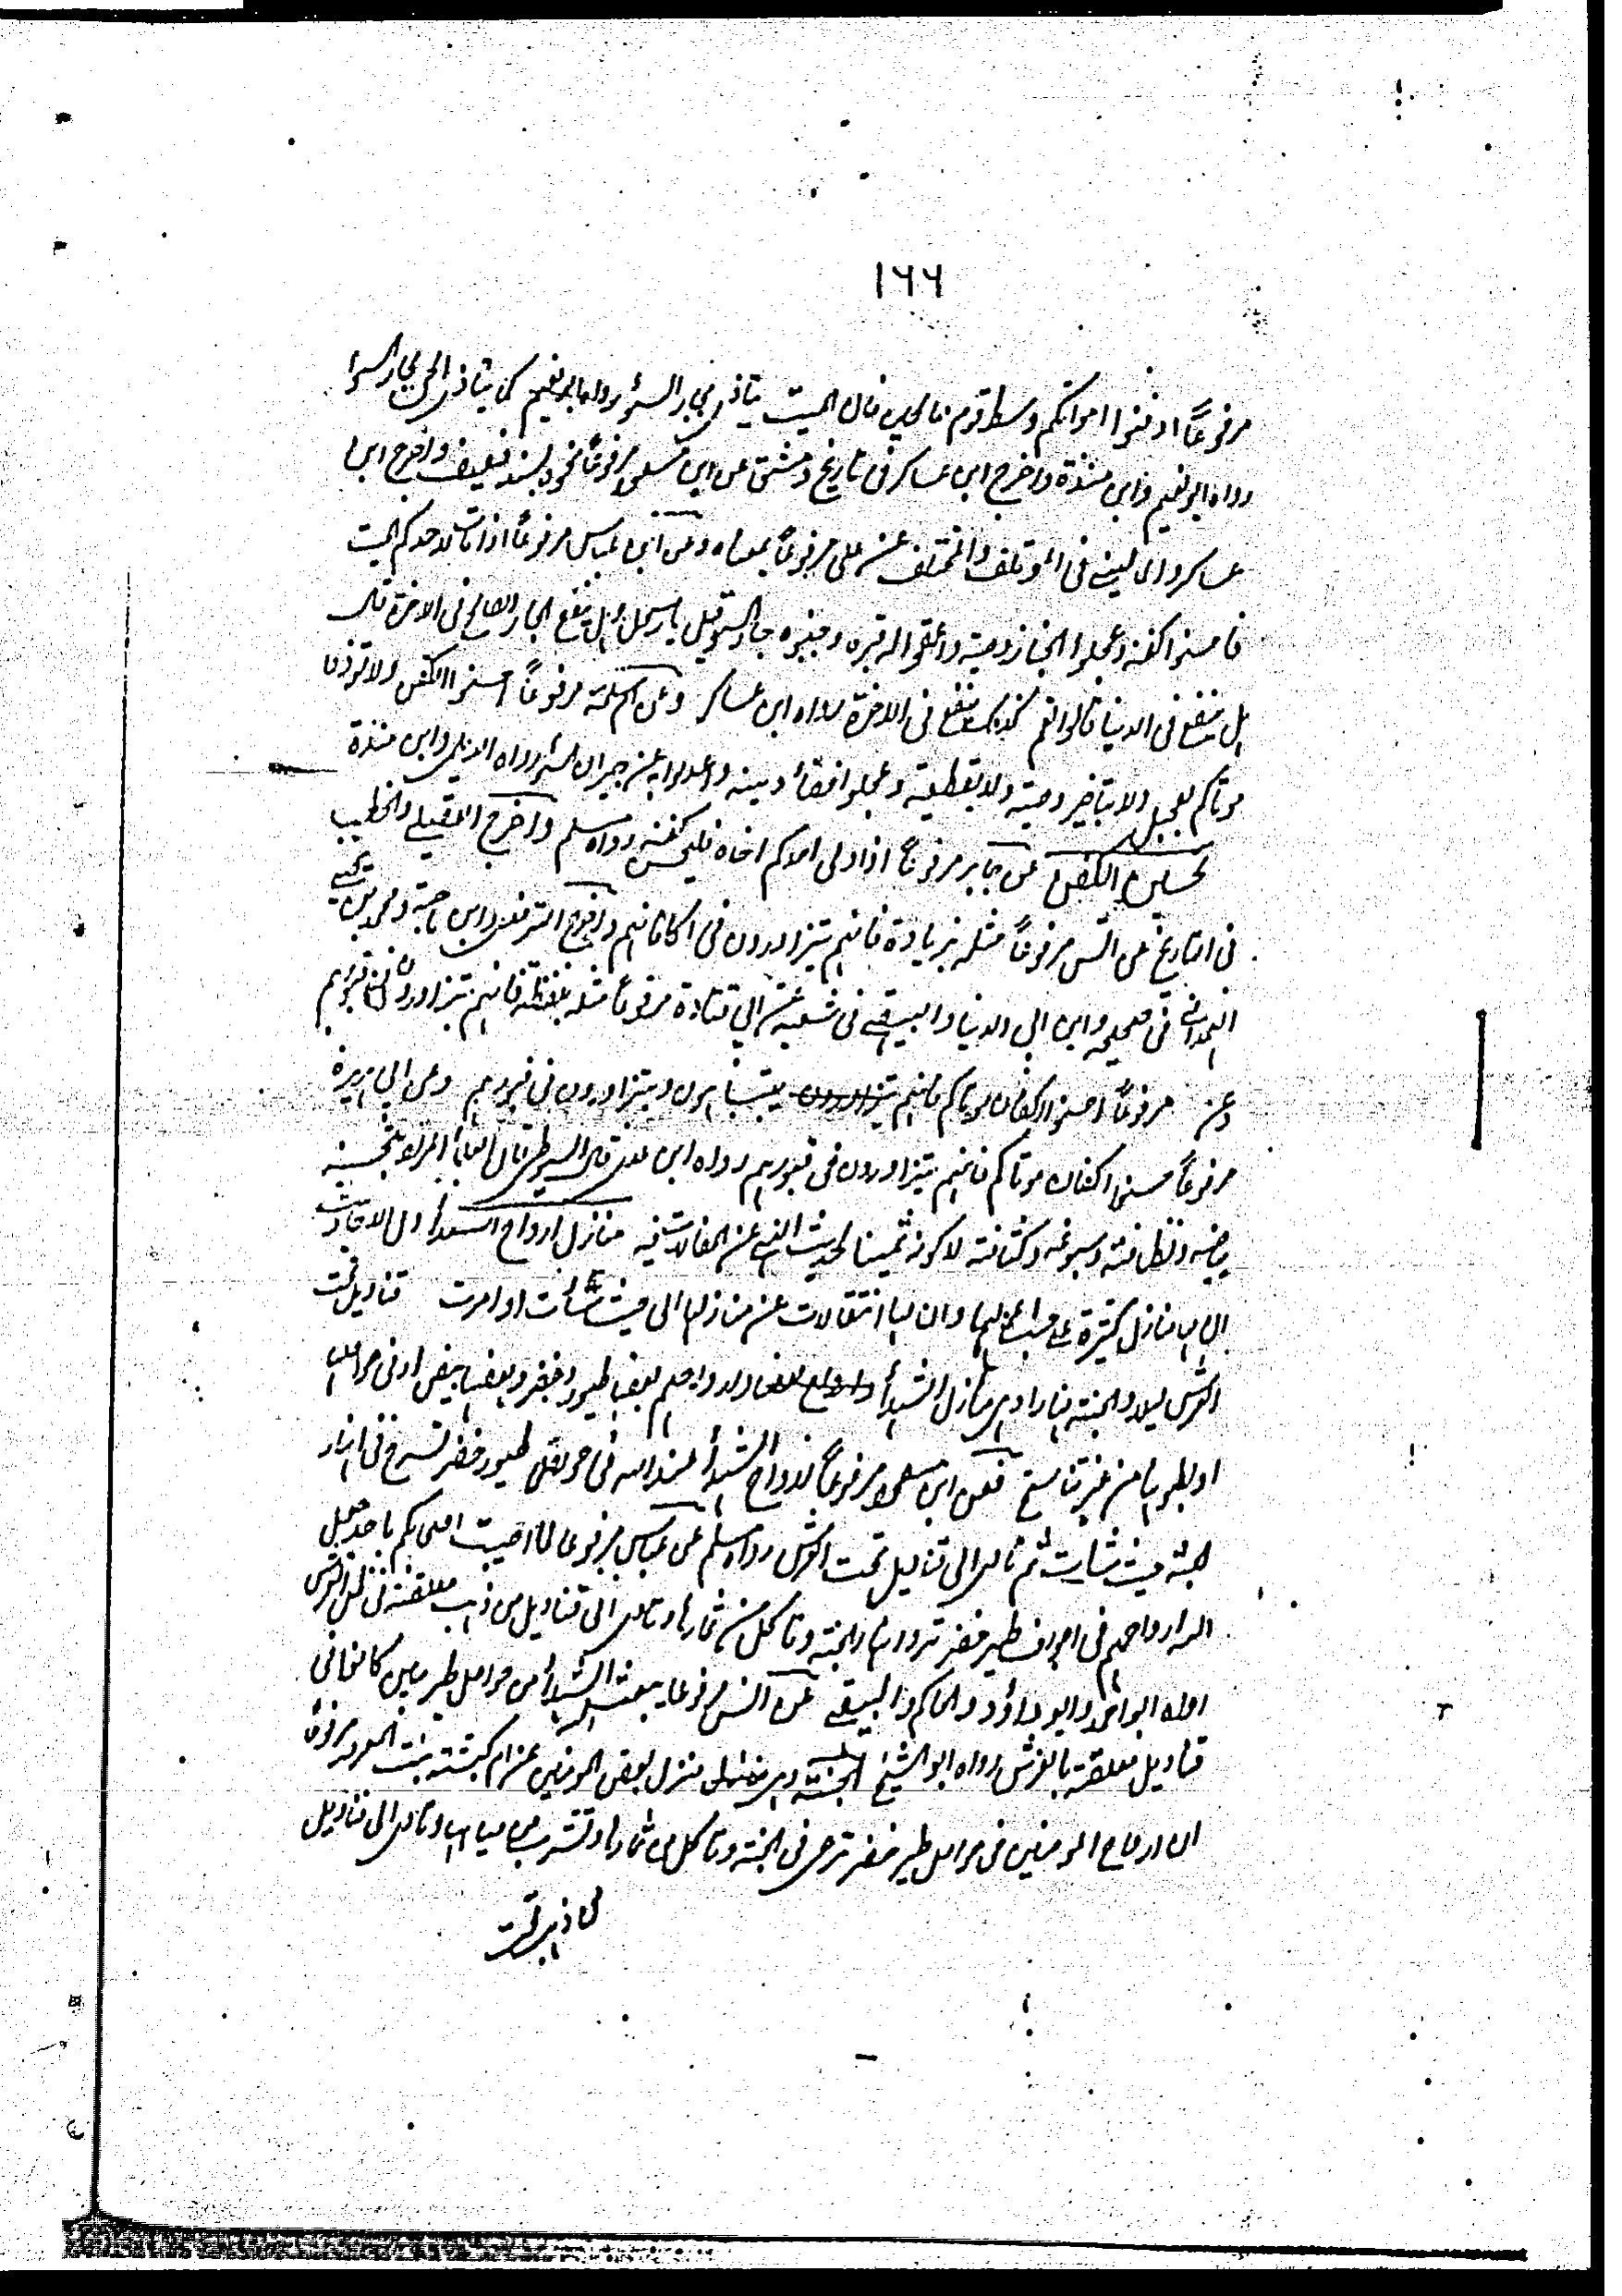 ١٦٦
مرفوعًا ادفنوا امواتكم وسط قوم صالحين فان الميت يتاذى بجار السوء كما يتاذى الحي بجار السوء
رواه ابو نعيم وابن مندة واخرج ابن عساكر فى تاريخ دمشق عن ابن مسعود مرفوعًا نحوه بسند ضعيف واخرج ابن
عساكر والمالينى فى المؤتلف والمختلف عن على مرفوعًا بمعناه وعن ابن عباس مرفوعًا اذا مات لاحدكم الميت
فاحسنوا كفنه وعجلوا انجاز وصيته واعمقوا له قبره وجنبوه جار السوء قيل يا رسول وهل ينفع الجار الصالح فى الاخرة قال
هل ينفع فى الدنيا قالوا نعم كذلك ينفع فى الاخرة رواه ابن عساكر وعن ام سلمة مرفوعًا احسنوا الكفن ولا تؤذوا
موتاكم بعويل ولا بتاخير وصيته ولا بقطيعة وعجلوا قضاء دينه واعدلوا به عن جيران السوء رواه الديلمى وابن مندة
تحسين الكفن عن جابر مرفوعًا اذا ولى احدكم اخاه فليحسن كفنه رواه مسلم واخرج العقيلى والخطيب
فى التاريخ عن انس مرفوعًا مثله بزيادة فانهم يتزاورون فى اكفانهم واخرج الترمذى وابن ماجة ومحمد بن يحيى
الهمدانى فى صحيحه وابن ابى الدنيا والبيهقى فى شعبه عن ابى قتادة مرفوعًا مثله بلفظه فانهم يتزاورون فى قبورهم
وعن مرفوعًا احسنوا اكفان موتاكم فانهم يتزاورون يتباهون ويتزاورون فى قبورهم وعن ابى هريرة
مرفوعًا حسنوا اكفان موتاكم فانهم يتزاورون فى قبورهم رواه ابن عدى قال السيوطى قال العلماء المراد بتحسينه
بياضه ونظافته وسبوغه وكثافته لا كونه ثمينا لحديث النهى عن المغالات فيه منازل ارواح الشهداء دل الاحاديث
ان لها منازل كثيرة على حسب اعمالها وان لها انتقالات عن منازلها الى حيث شاءت او امرت قناديل تحت
العرش ليلا والجنة نهارا وهى منازل الشهداء وارواحهم بعضها طيور خضر وبعضها بيض او فى حواصلها
او بطونها من غير تناسخ فعن ابن مسعود مرفوعًا ارواح الشهداء عند الله فى حواصل طيور خضر تسرح فى انهار
الجنة حيث شاءت ثم تاوى الى قناديل تحت العرش رواه مسلم عن عباس مرفوعا لما اصيب اصحابكم باحد جعل
الله ارواحهم فى اجواف طير خضر ترد انهار الجنة وتاكل من ثمارها وتاوى الى قناديل من ذهب معلقة فى ظل العرش
رواه احمد وابو داؤد والحاكم والبيهقى عن انس مرفوعا يبعث الله الشهداء من حواصل طير بيض كانوا فى
قناديل معلقة بالعرش رواه ابو الشيخ الجنة وهى منزل بعض المؤمنين عن ام كبشة بنت المعرور مرفوعًا
ان ارواح المومنين فى حواصل طير خضر ترعى فى الجنة وتاكل من ثمارها وتشرب من مياهها وتاوى الى قناديل
من ذهب تحت